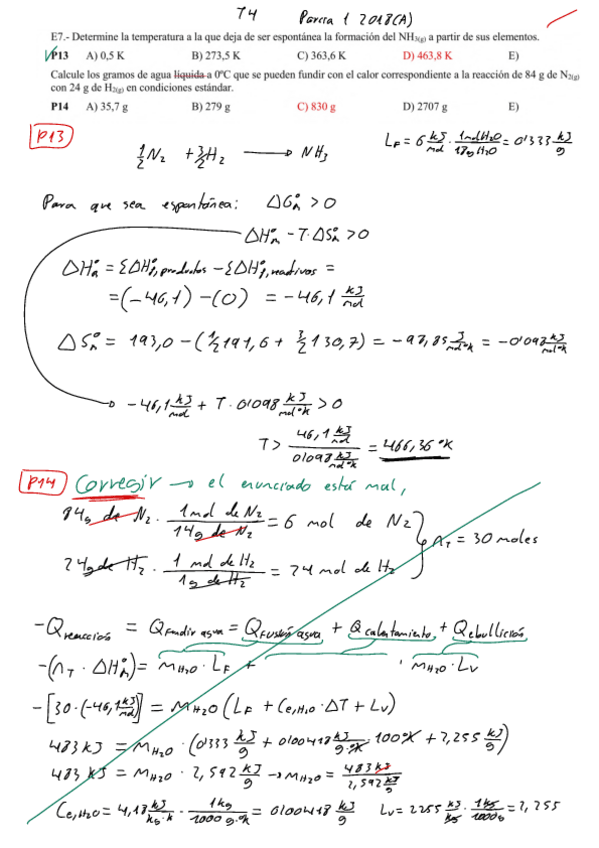 T4 Parcia 1 2018(A)
E7.- Determine la temperatura a la que deja de ser espontánea la formación del NH3(g) a partir de sus elementos.
P13 A) 0,5 K B) 273,5 K C) 363,6 K D) 463,8 K E)
Calcule los gramos de agua líquida a 0ºC que se pueden fundir con el calor correspondiente a la reacción de 84 g de N2(g)
con 24 g de H2(g) en condiciones estándar.
P14 A) 35,7 g B) 279 g C) 830 g D) 2707 g E)
P13
½N2 + 3/2H2 → NH3
LF = 6 kJ/mol · 1molH2O/18g H2O = 0'333 kJ/g
Para que sea espontánea: ΔG°r > 0
ΔH°r - T·ΔS°r > 0
ΔH°r = ΣΔH°f,productos - ΣΔH°f,reactivos =
= (-46,1) - (0) = -46,1 kJ/mol
ΔS°r = 193,0 - (½191,6 + 3/2 130,7) = -98,85 J/mol°K = -0'098 kJ/mol°K
-46,1 kJ/mol + T · 0'098 kJ/mol°K > 0
T > 46,1 kJ/mol / 0'098 kJ/mol°K = 466,36°K
P14 Corregir → el enunciado está mal,
84g de N2 · 1mol de N2/14g de N2 = 6 mol de N2
nT = 30 moles
24g de H2 · 1 mol de H2/1g de H2 = 24 mol de H2
-Qreacción = Qfundir agua = Qfusión agua + Qcalentamiento + Qebullición
-(nT · ΔH°r) = mH2O · LF + · mH2O · LV
-[30·(-46,1 kJ/mol)] = mH2O (LF + Ce,H2O · ΔT + LV)
483 kJ = mH2O · (0'333 kJ/g + 0'00418 kJ/g·°K · 100°K + 2,255 kJ/g)
483 kJ = mH2O · 2,592 kJ/g → mH2O = 483 kJ / 2,592 kJ/g
Ce,H2O = 4,18 kJ/kg·K · 1kg/1000g·°K = 0'00418 kJ/g LV = 2255 kJ/kg · 1kg/1000g = 2,255